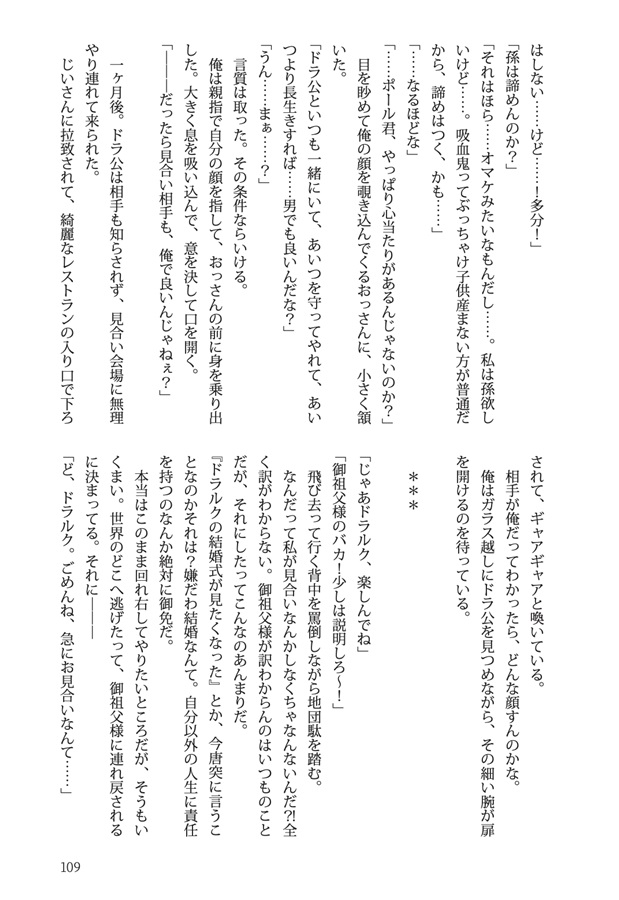 はしない……けど……！多分！」
「孫は諦めんのか？」
「それはほら……オマケみたいなもんだし……。私は孫欲し
いけど……。吸血鬼ってぶっちゃけ子供産まない方が普通だ
から、諦めはつく、かも……」
「……なるほどな」
「……ポール君、やっぱり心当たりがあるんじゃないのか？」
目を眇めて俺の顔を覗き込んでくるおっさんに、小さく頷
いた。
「ドラ公といつも一緒にいて、あいつを守ってやれて、あい
つより長生きすれば……男でも良いんだな？」
「うん……まぁ……？」
言質は取った。その条件ならいける。
俺は親指で自分の顔を指して、おっさんの前に身を乗り出
した。大きく息を吸い込んで、意を決して口を開く。
「――だったら見合い相手も、俺で良いんじゃねぇ？」
一ヶ月後。ドラ公は相手も知らされず、見合い会場に無理
やり連れて来られた。
じいさんに拉致されて、綺麗なレストランの入り口で下ろ
されて、ギャアギャアと喚いている。
相手が俺だってわかったら、どんな顔すんのかな。
俺はガラス越しにドラ公を見つめながら、その細い腕が扉
を開けるのを待っている。
＊＊＊
「じゃあドラルク、楽しんでね」
「御祖父様のバカ！少しは説明しろ～！」
飛び去って行く背中を罵倒しながら地団駄を踏む。
なんだって私が見合いなんかしなくちゃなんないんだ?!全
く訳がわからない。御祖父様が訳わからんのはいつものこと
だが、それにしたってこんなのあんまりだ。
『ドラルクの結婚式が見たくなった』とか、今唐突に言うこ
となのかそれは？嫌だわ結婚なんて。自分以外の人生に責任
を持つのなんか絶対に御免だ。
本当はこのまま回れ右してやりたいところだが、そうもい
くまい。世界のどこへ逃げたって、御祖父様に連れ戻される
に決まってる。それに――
「ど、ドラルク。ごめんね、急にお見合いなんて……」
109